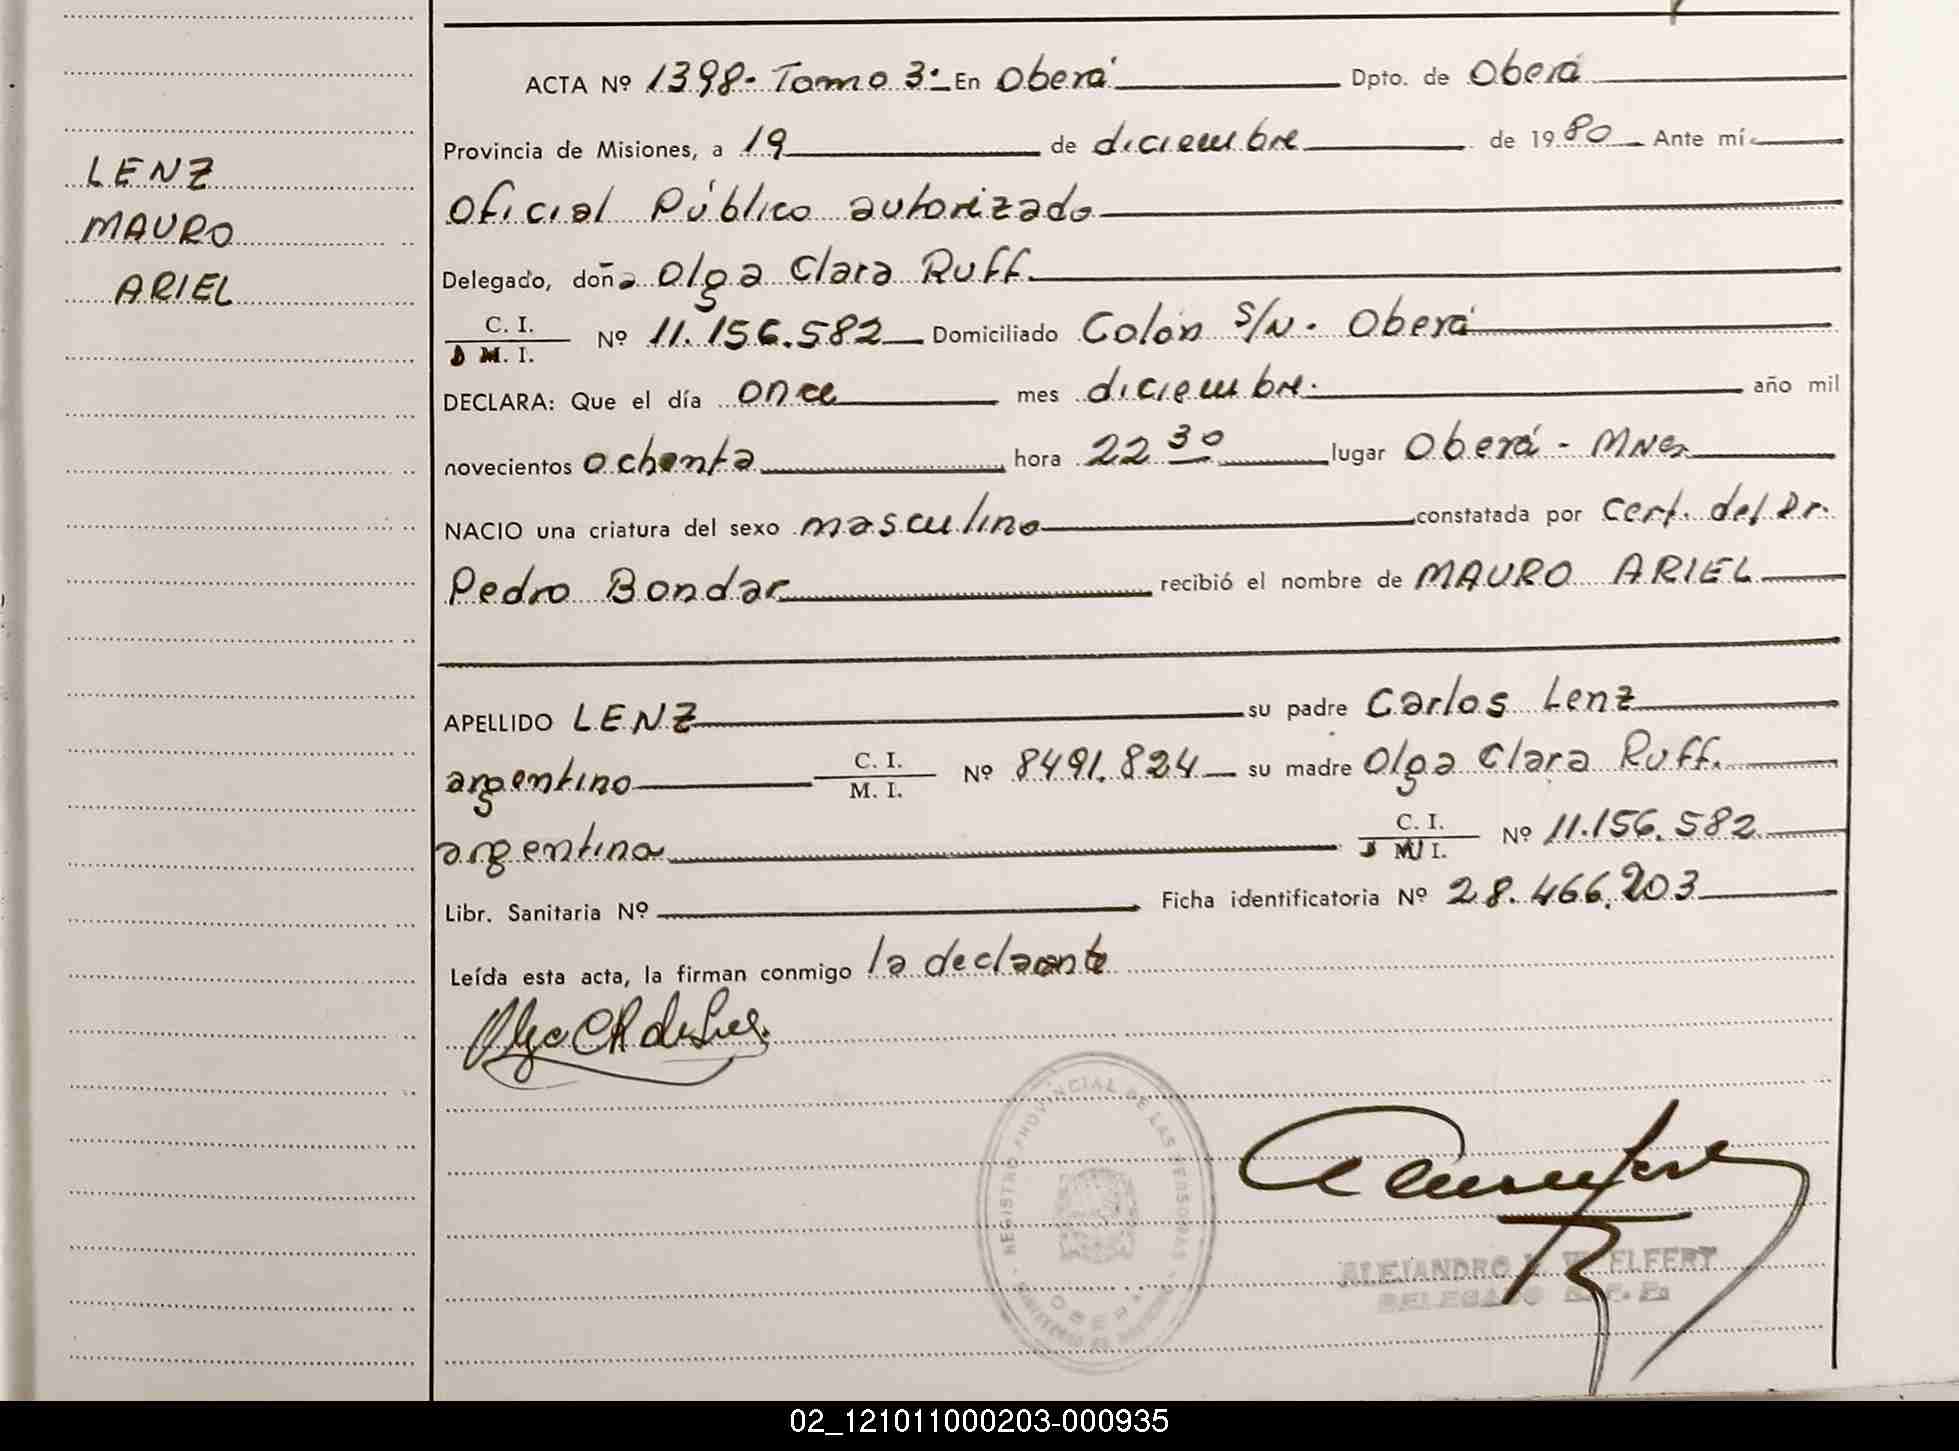 LENZ
MAURO
ARIEL
ACTA Nº 1398- Tomo 3º En Oberá Dpto. de Oberá
Provincia de Misiones, a 19 de diciembre de 1980 Ante mí
Oficial Público autorizado
Delegado, doña Olga Clara Ruff
C. I.
Nº 11.156.582 Domiciliado Colón S/N. Oberá
D M. I.
DECLARA: Que el día once mes diciembre. año mil
novecientos ochenta hora 22 30 lugar Oberá - Mnes
NACIO una criatura del sexo masculino constatada por Cert. del Dr.
Pedro Bondar recibió el nombre de MAURO ARIEL
APELLIDO LENZ su padre Carlos Lenz
argentino C. I. Nº 8491.824 su madre Olga Clara Ruff.
M. I.
argentina C. I. Nº 11.156.582
M I.
Libr. Sanitaria Nº Ficha identificatoria Nº 28.466.203
Leída esta acta, la firman conmigo la declarante
REGISTRO PROVINCIAL DE LAS PERSONAS
OBERA
ALEJANDRO ELFERT
DELEGADO R. P. P.
02_121011000203-000935